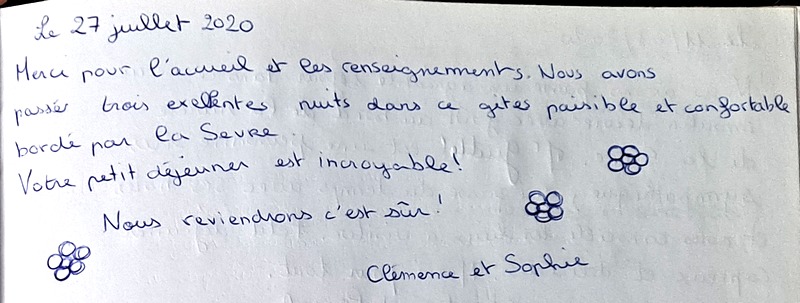 Le 27 juillet 2020
Merci pour l'accueil et les renseignements. Nous avons
passés trois excellentes nuits dans ce gîtes paisible et confortable
bordé par la Sevre.
Votre petit déjeuner est incroyable!
Nous reviendrons c'est sûr!
Clémence et Sophie